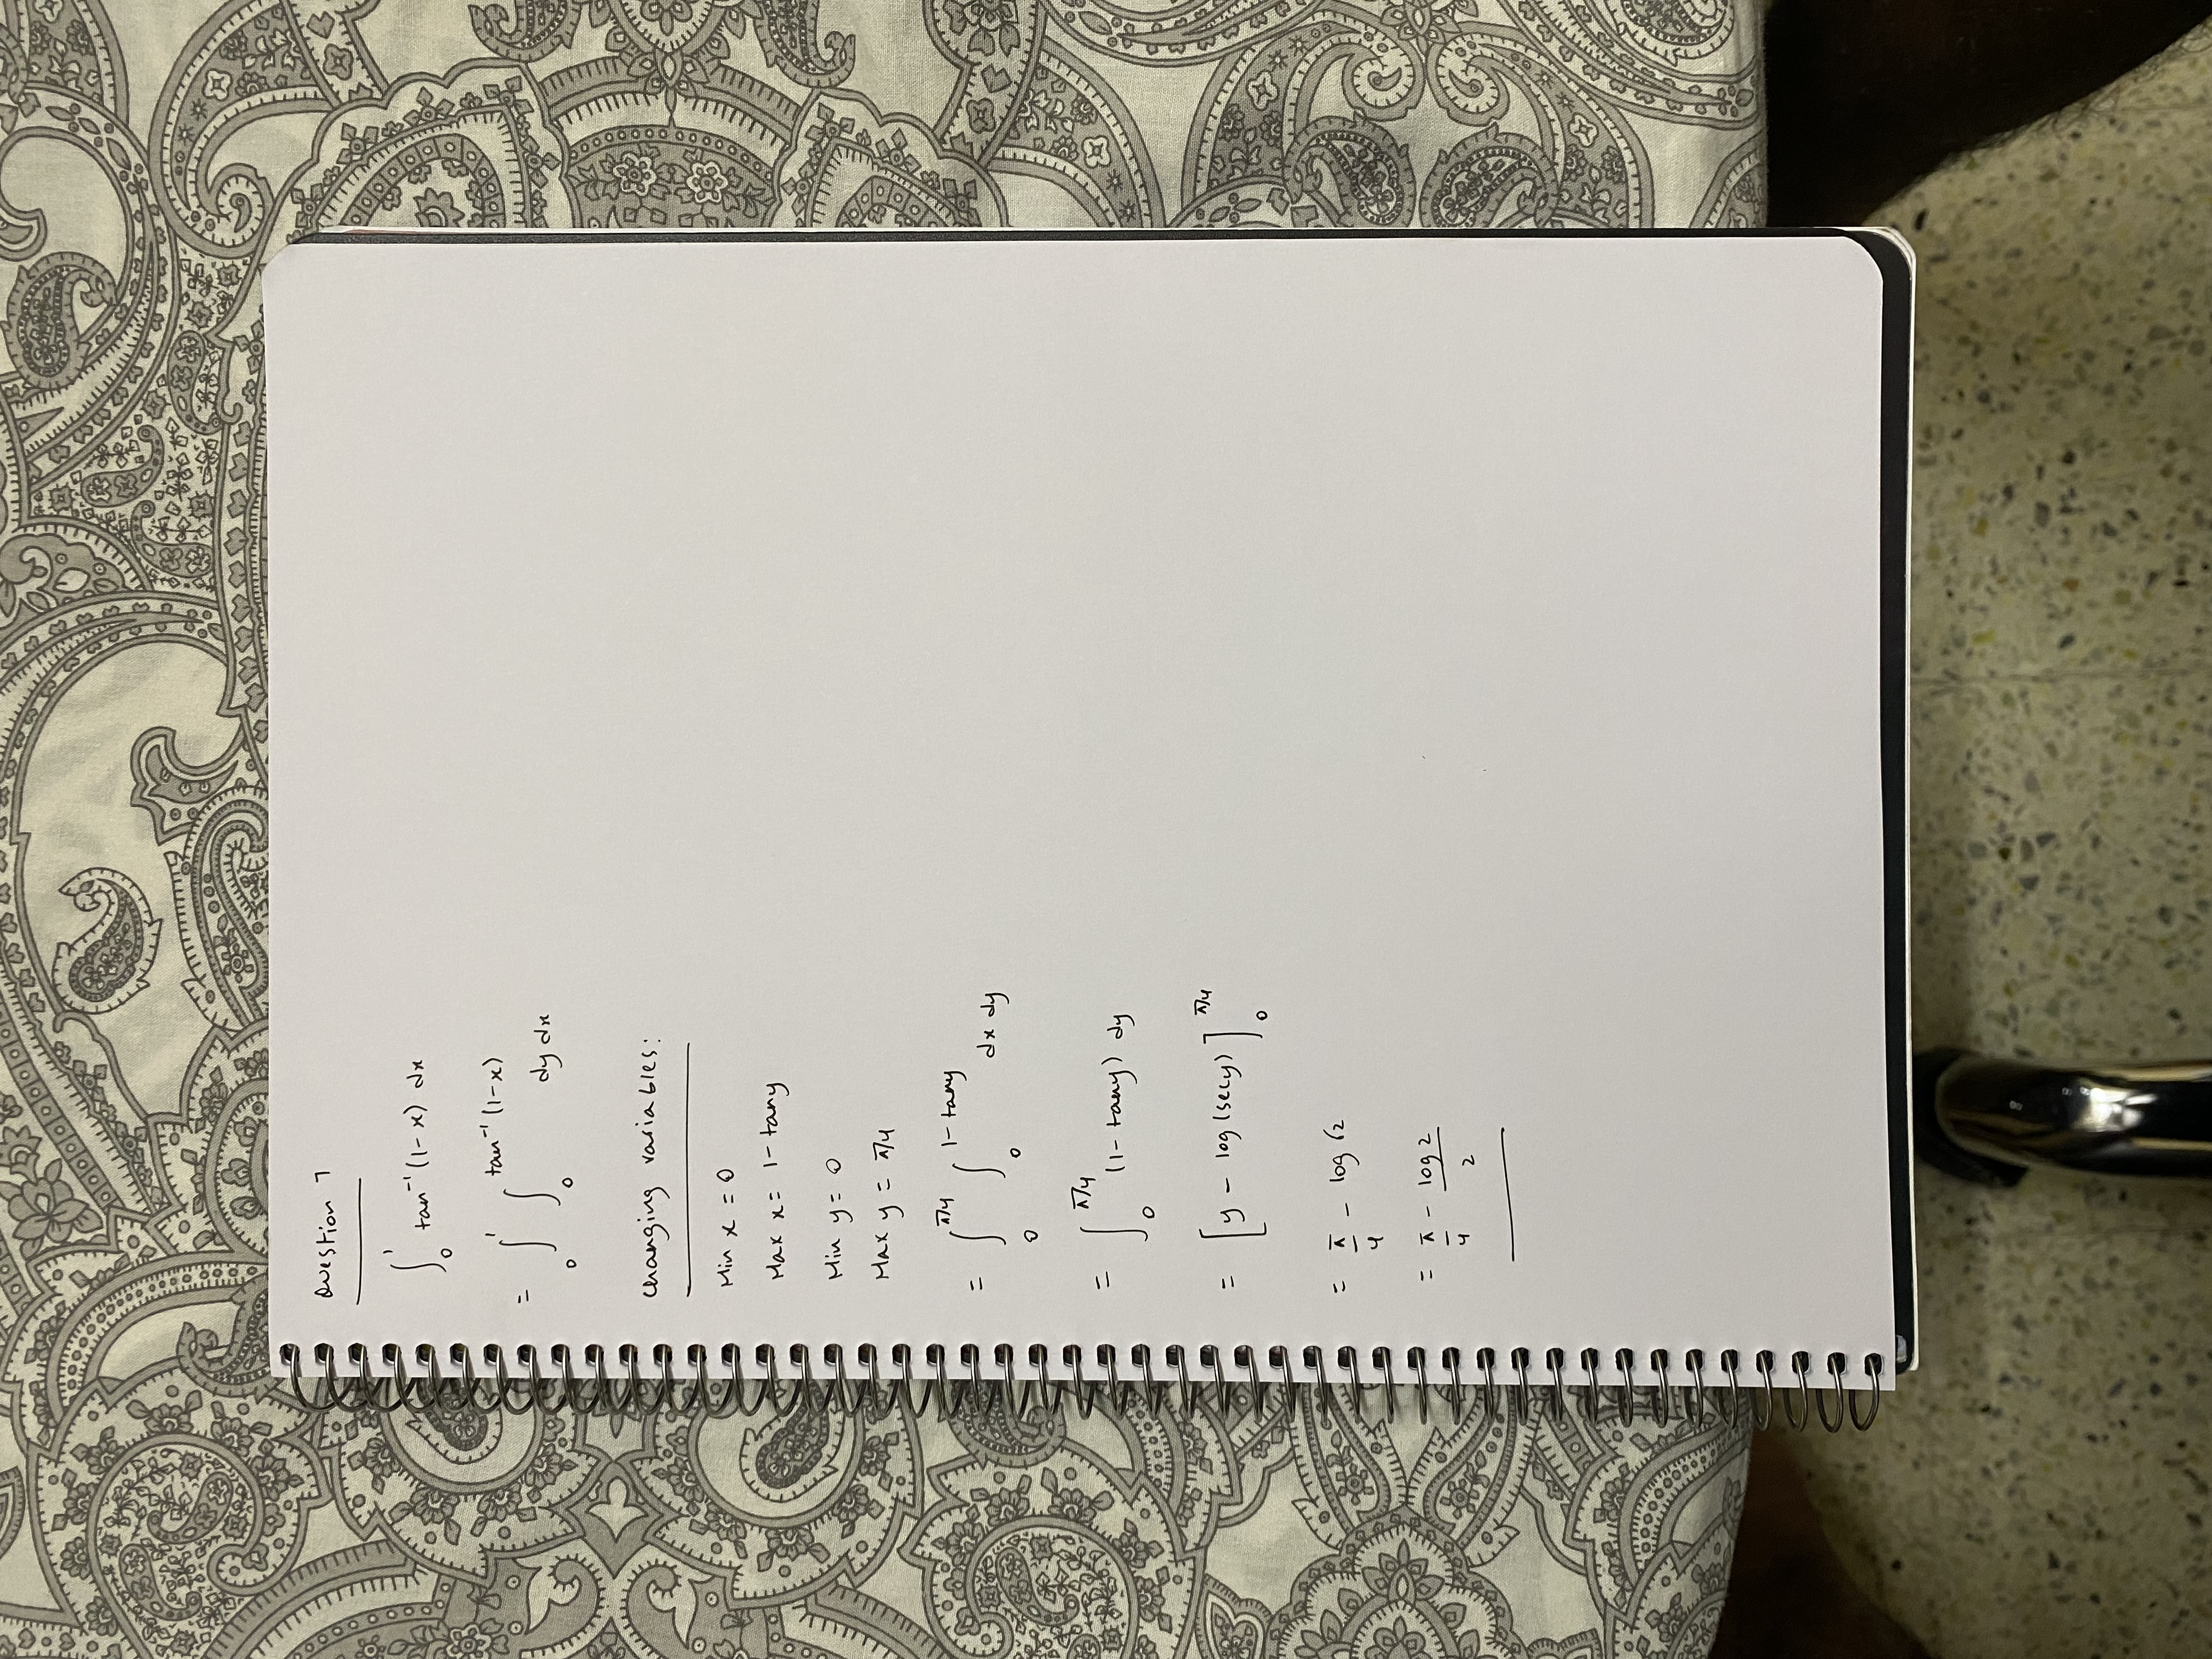 Question 7
∫₀¹ tan⁻¹(1-x) dx
= ∫₀¹ ∫₀^(tan⁻¹(1-x)) dy dx
changing variables:
Min x = 0
Max x = 1- tany
Min y = 0
Max y = π/4
= ∫₀^(π/4) ∫₀^(1- tany) dx dy
= ∫₀^(π/4) (1- tany) dy
= [y - log(secy)]₀^(π/4)
= π/4 - log √2
= π/4 - log 2/2